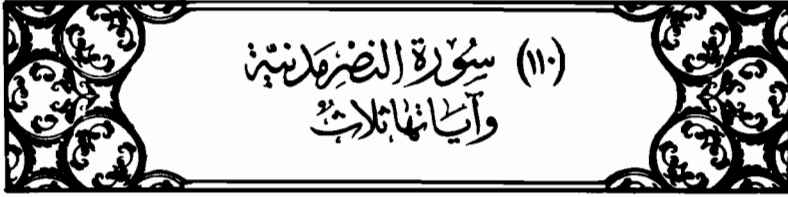 (١١٠) سُورَة النَّصْر مَدَنيَّة
وَآيَاتُهَا ثَلَاثٌ